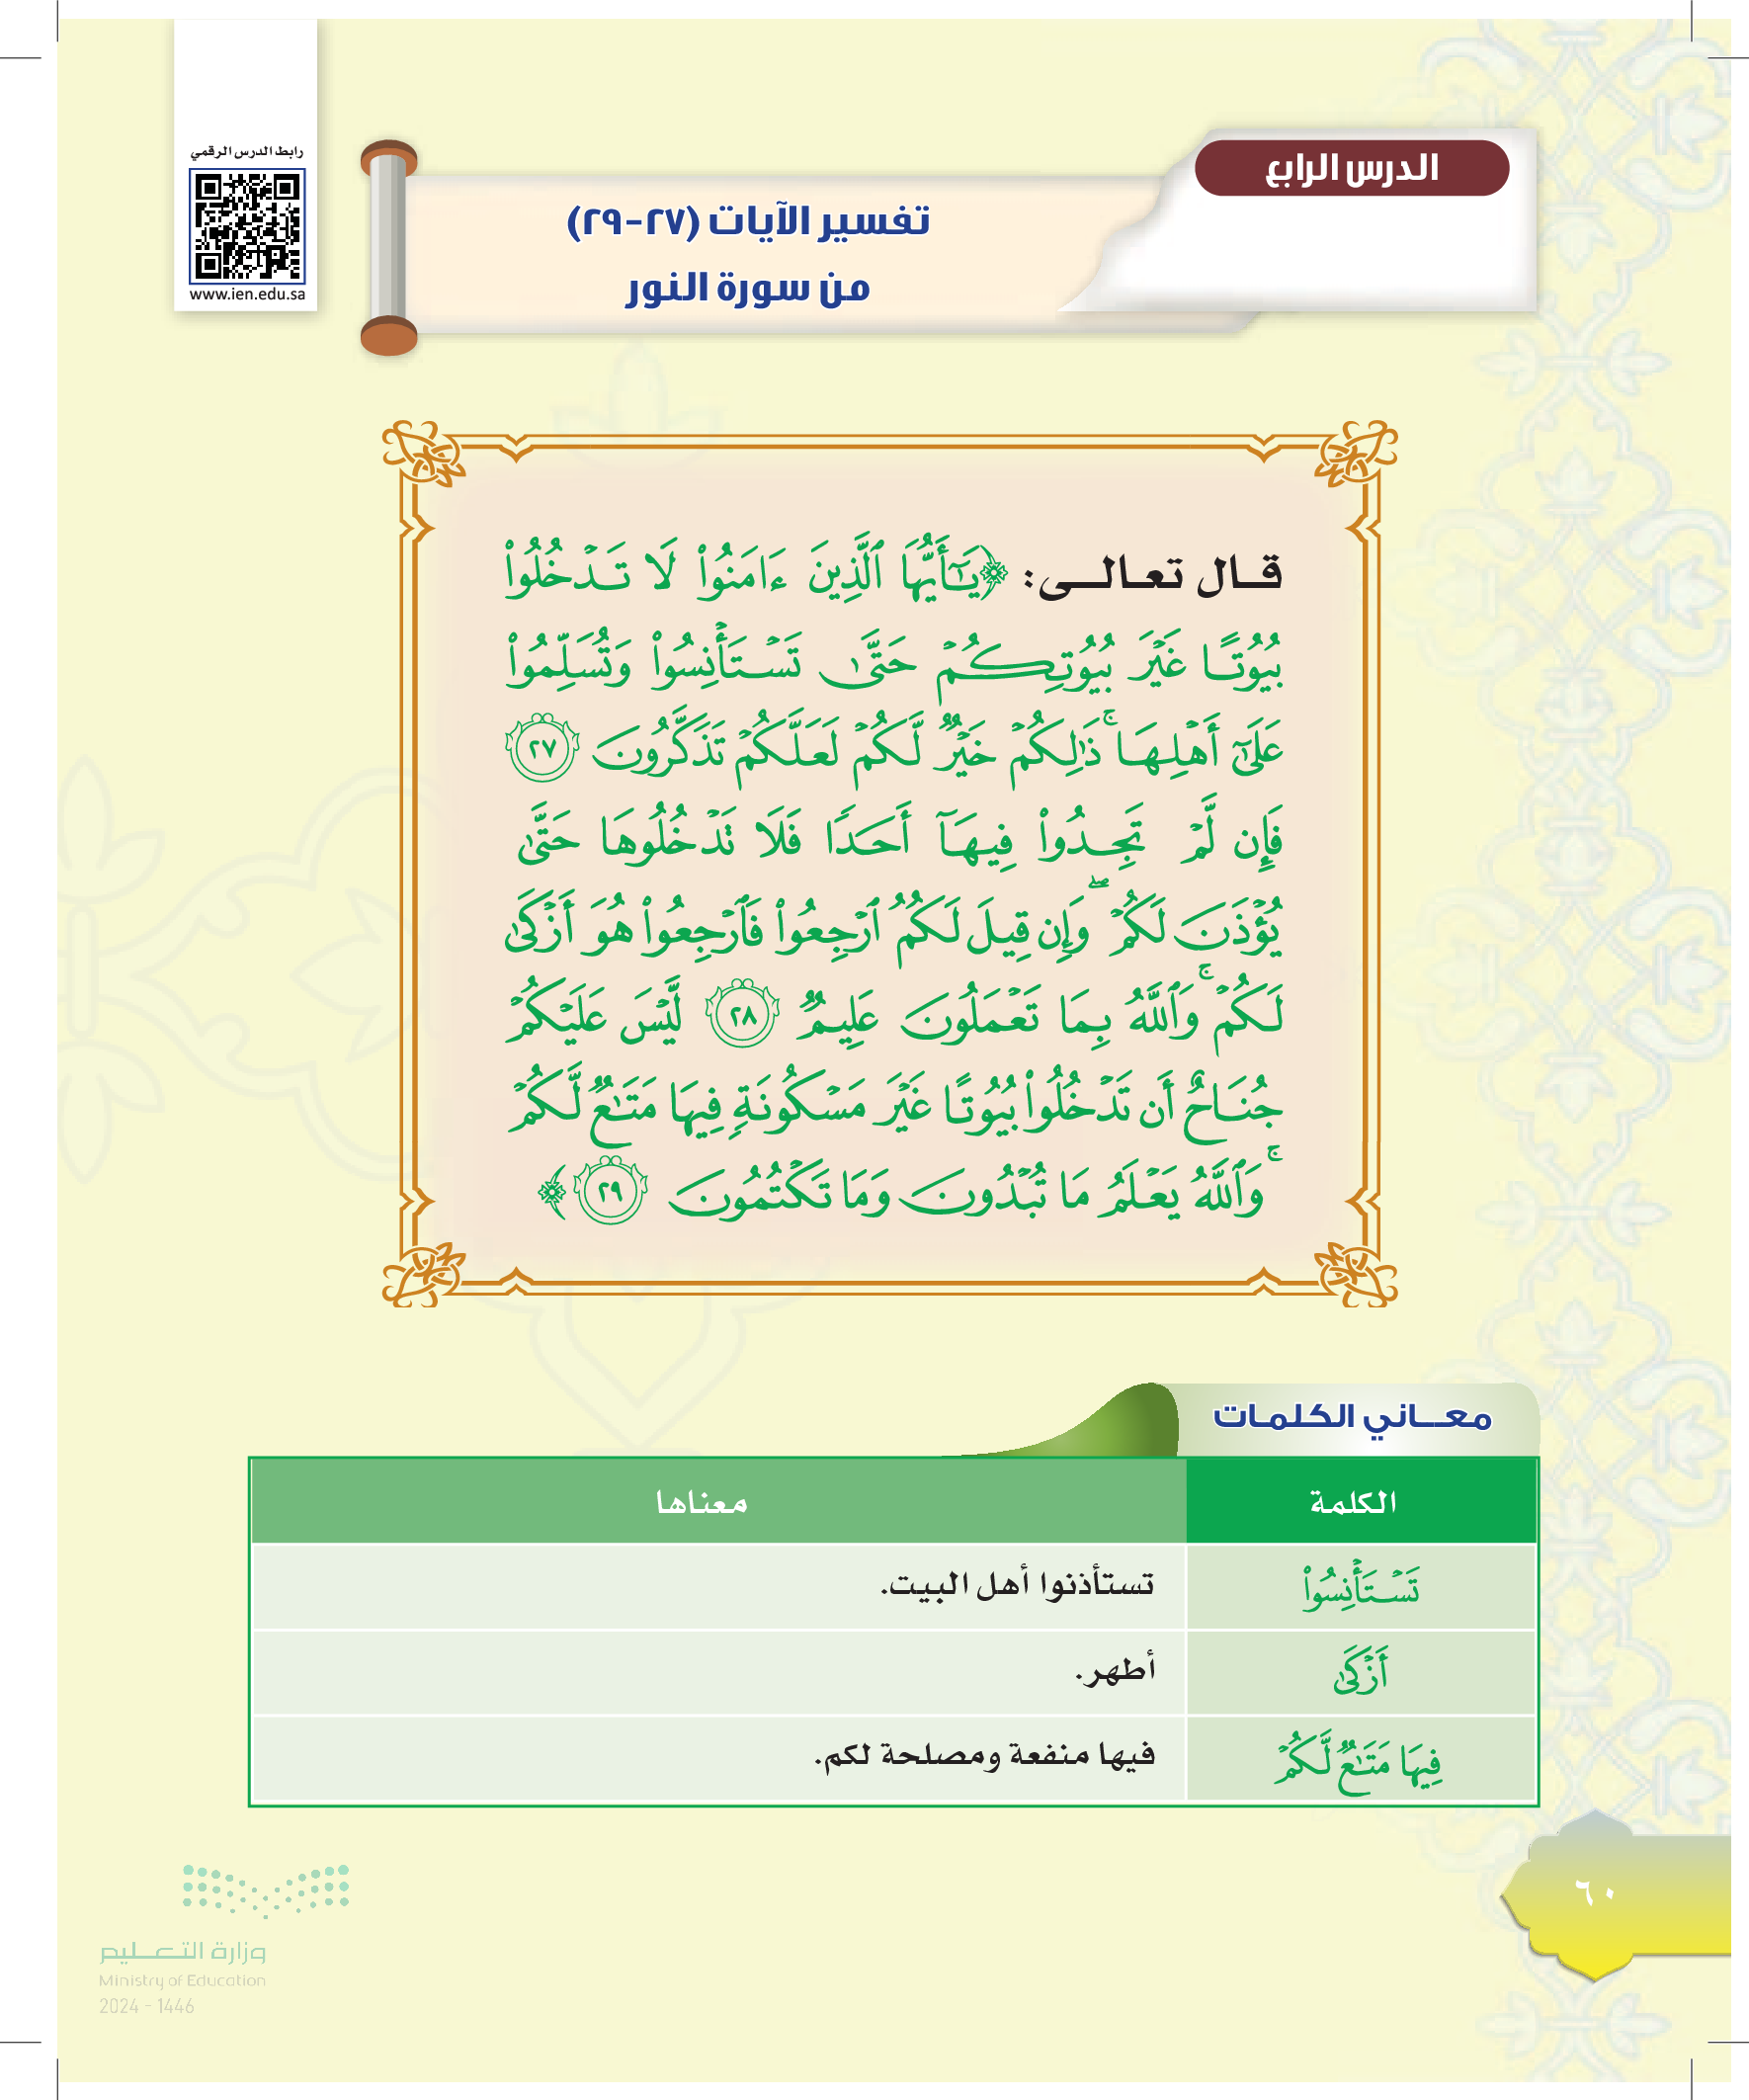 رابط الدرس الرقمي
www.ien.edu.sa
الدرس الرابع
تفسير الآيات (٢٧-٢٩)
من سورة النور
قـال تعـالــى: ﴿يَٰٓأَيُّهَا ٱلَّذِينَ ءَامَنُوا۟ لَا تَدۡخُلُوا۟
بُيُوتًا غَيۡرَ بُيُوتِكُمۡ حَتَّىٰ تَسۡتَأۡنِسُوا۟ وَتُسَلِّمُوا۟
عَلَىٰٓ أَهۡلِهَاۚ ذَٰلِكُمۡ خَيۡرٌ لَّكُمۡ لَعَلَّكُمۡ تَذَكَّرُونَ ٢٧
فَإِن لَّمۡ تَجِدُوا۟ فِيهَآ أَحَدًا فَلَا تَدۡخُلُوهَا حَتَّىٰ
يُؤۡذَنَ لَكُمۡۖ وَإِن قِيلَ لَكُمُ ٱرۡجِعُوا۟ فَٱرۡجِعُوا۟ هُوَ أَزۡكَىٰ
لَكُمۡۚ وَٱللَّهُ بِمَا تَعۡمَلُونَ عَلِيمٌ ٢٨ لَّيۡسَ عَلَيۡكُمۡ
جُنَاحٌ أَن تَدۡخُلُوا۟ بُيُوتًا غَيۡرَ مَسۡكُونَةٍ فِيهَا مَتَٰعٌ لَّكُمۡ
ۚ وَٱللَّهُ يَعۡلَمُ مَا تُبۡدُونَ وَمَا تَكۡتُمُونَ ٢٩﴾
معـــاني الكلمـات
الكلمة معناها
تَسۡتَأۡنِسُوا۟ تستأذنوا أهل البيت.
أَزۡكَىٰ أطهر.
فِيهَا مَتَٰعٌ لَّكُمۡ فيها منفعة ومصلحة لكم.
٦٠
وزارة التعـليم
Ministry of Education
2024 - 1446